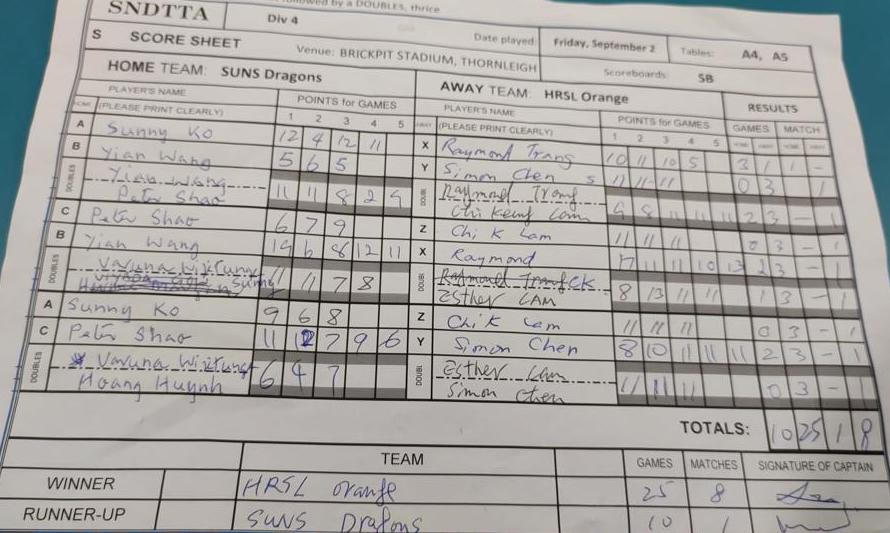 followed by a DOUBLES, thrice
SNDTTA Div 4 Date played: Friday, September 2 Tables: A4, A5
S SCORE SHEET Venue: BRICKPIT STADIUM, THORNLEIGH Scoreboards: SB
HOME TEAM: SUNS Dragons AWAY TEAM: HRSL Orange RESULTS
PLAYER'S NAME POINTS for GAMES PLAYER'S NAME POINTS for GAMES GAMES MATCH
HOME (PLEASE PRINT CLEARLY) 1 2 3 4 5 AWAY (PLEASE PRINT CLEARLY) 1 2 3 4 5 HOME AWAY HOME AWAY
A Sunny Ko 12 4 12 11 X Raymond Trang 10 11 10 5 3 1 1 -
B Yian Wang 5 6 5 Y Simon Chen 11 11 0 3 1
DOUBLES Yian Wang Raymond Trang
Peter Shao 11 11 8 2 9 DOUBL Chi Keung Lam 9 8 11 11 11 2 3 - 1
C Peter Shao 6 7 9 Z Chi K Lam 11 11 11 0 3 - 1
B Yian Wang 6 8 12 11 X Raymond 11 11 10 13 2 3 - 1
DOUBLES Varuna DOUBL Raymond
Sunny 11 7 8 ESTHER LAM 8 13 11 11 1 3 - 1
A Sunny Ko 9 6 8 Z Chi K Lam 11 11 11 0 3 - 1
C Peter Shao 11 12 7 9 6 Y Simon Chen 8 10 11 11 11 2 3 - 1
DOUBLES Varuna DOUBL Esther Lam
Hoang Huynh 6 4 7 Simon Chen 11 11 11 0 3 - 1
TOTALS: 10 25 1 8
TEAM GAMES MATCHES SIGNATURE OF CAPTAIN
WINNER HRSL orange 25 8
RUNNER-UP SUNS Dragons 10 1